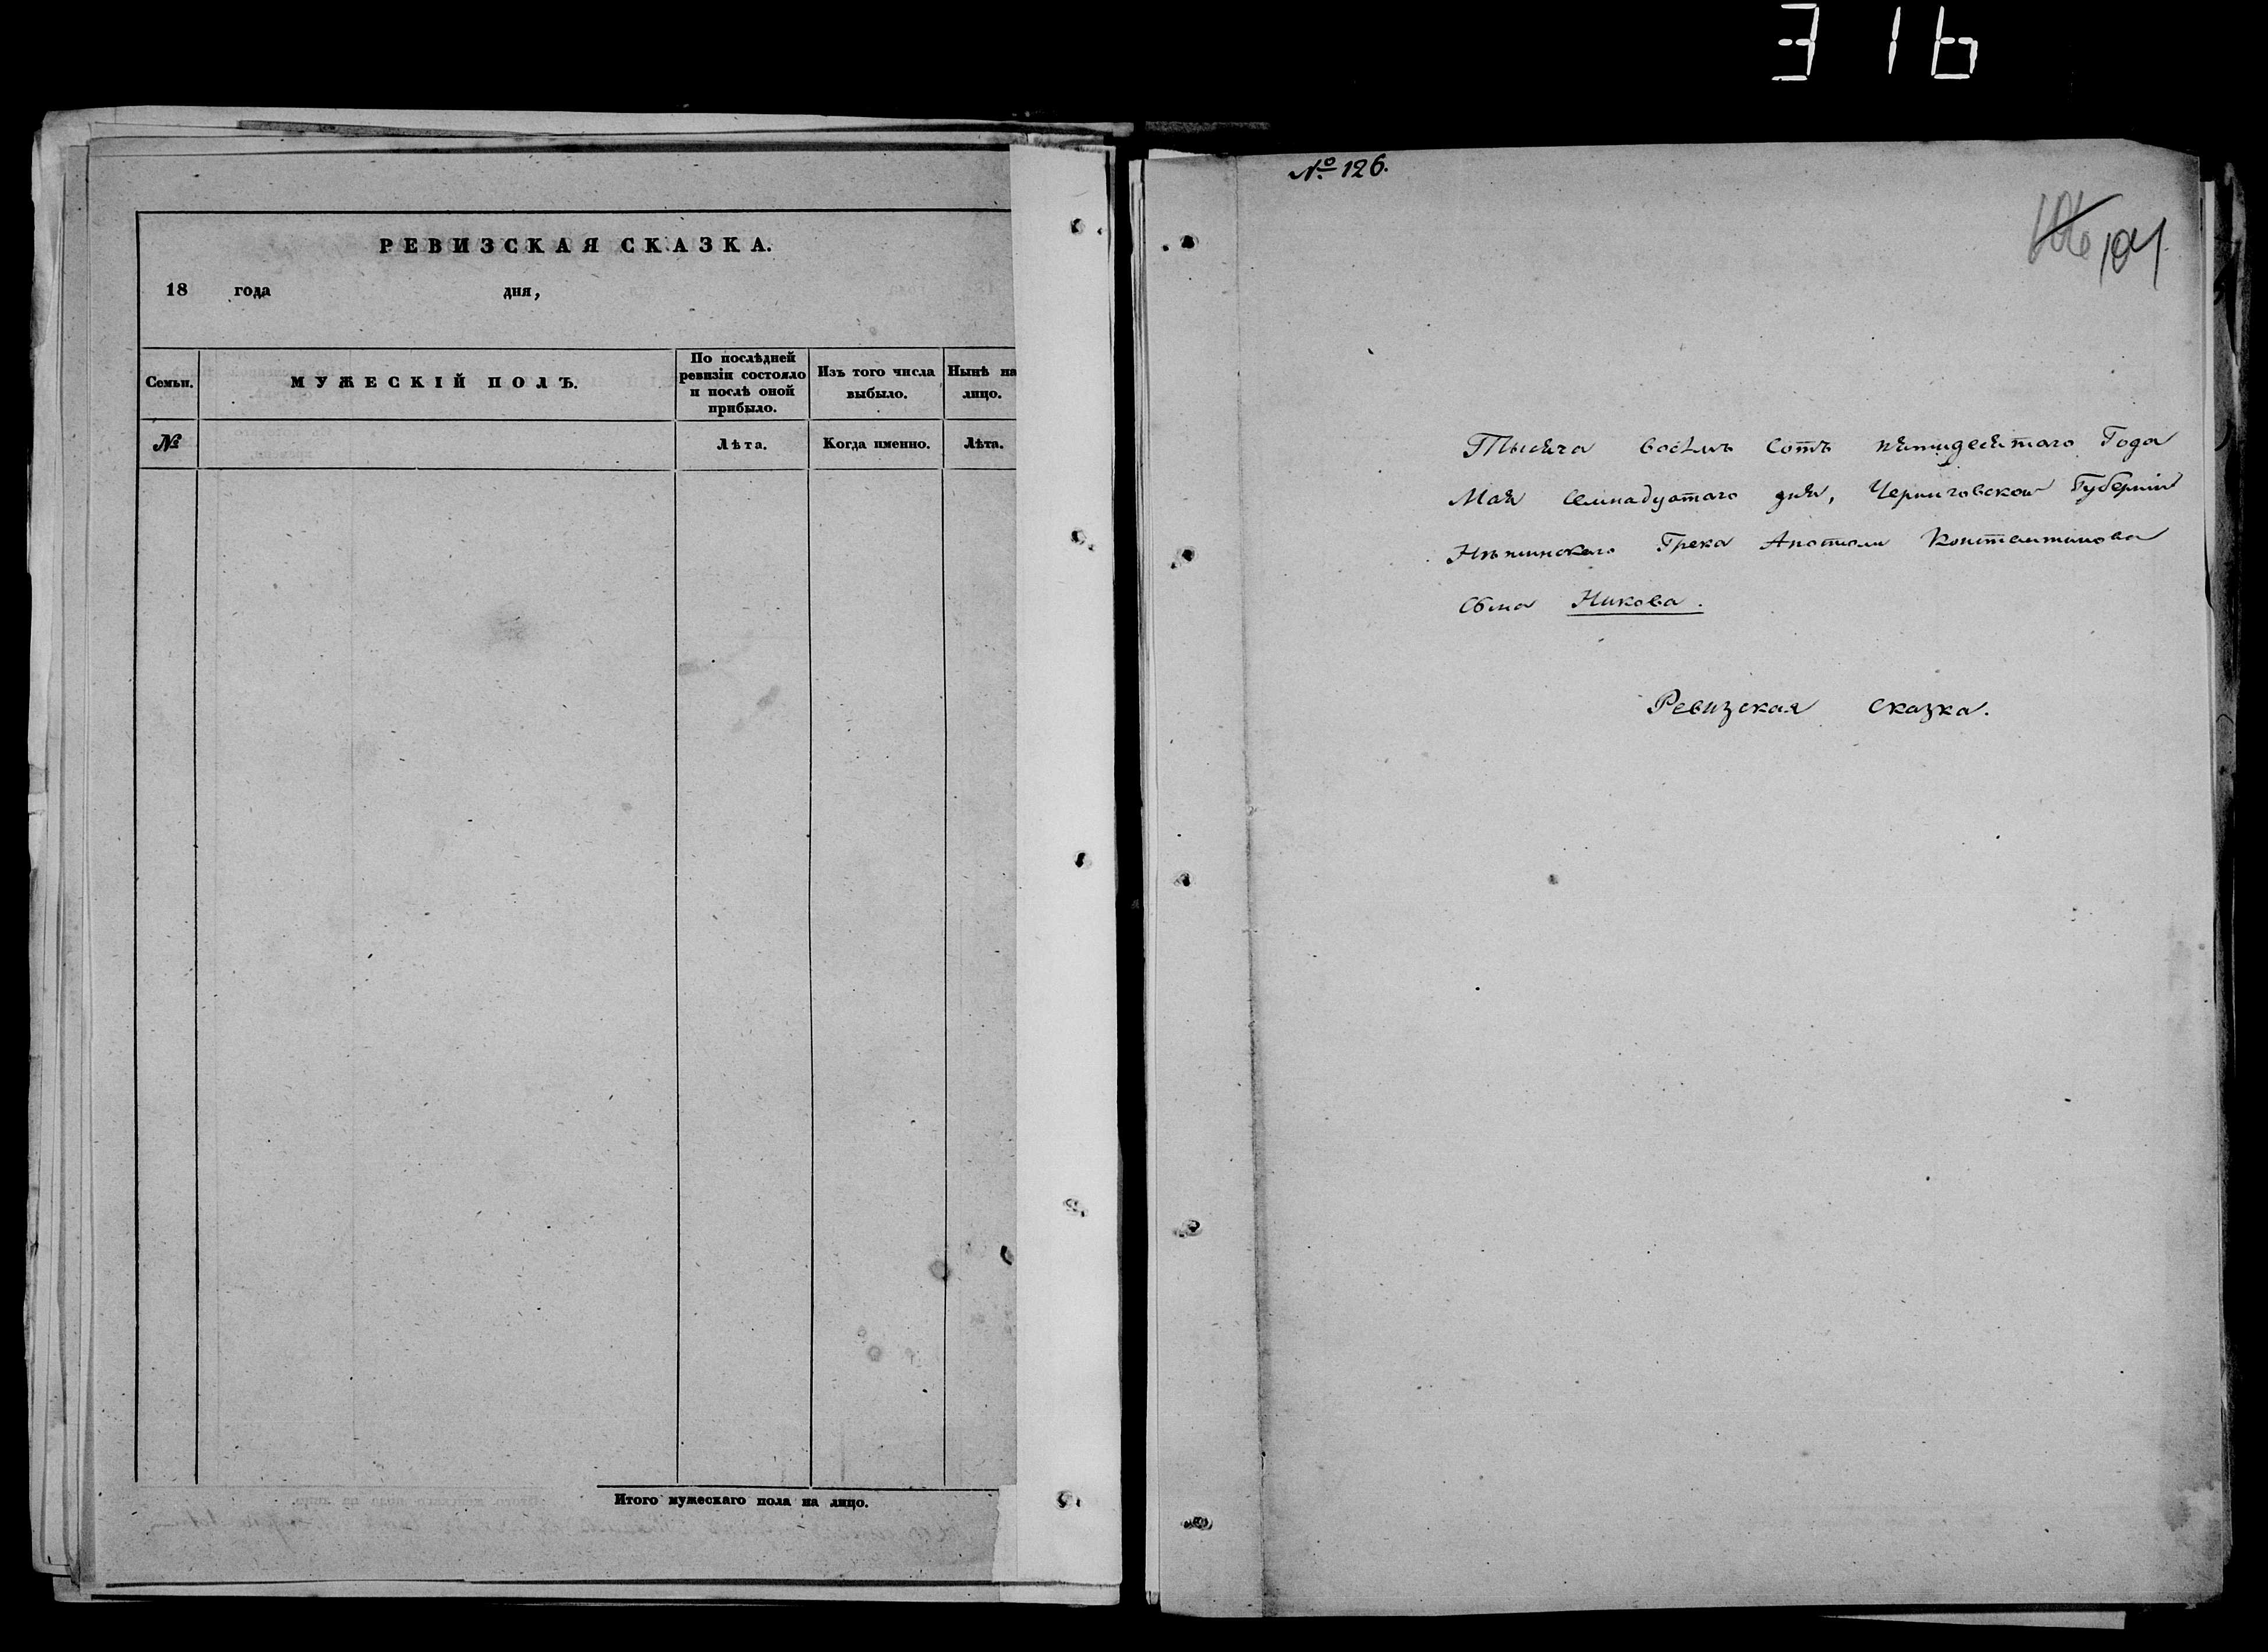 РЕВИЗСКАЯ СКАЗКА.
18 года дня,
Семьи.
МУЖЕСКІЙ ПОЛЪ.
По послѣдней
ревизіи состояло
и послѣ оной
прибыло.
Изъ того числа
выбыло.
Нынѣ на
лицо.
№
Лѣта.
Когда именно.
Лѣта.
Итого мужескаго пола на лицо.
№ 126.
106 104
Тысяча восемь сотъ пятидесятаго Года
Мая семнадцатаго дня, Черниговской Губерніи
Нѣжинскаго Грека Анатоли Константинова
сына Никова.
Ревизская сказка.